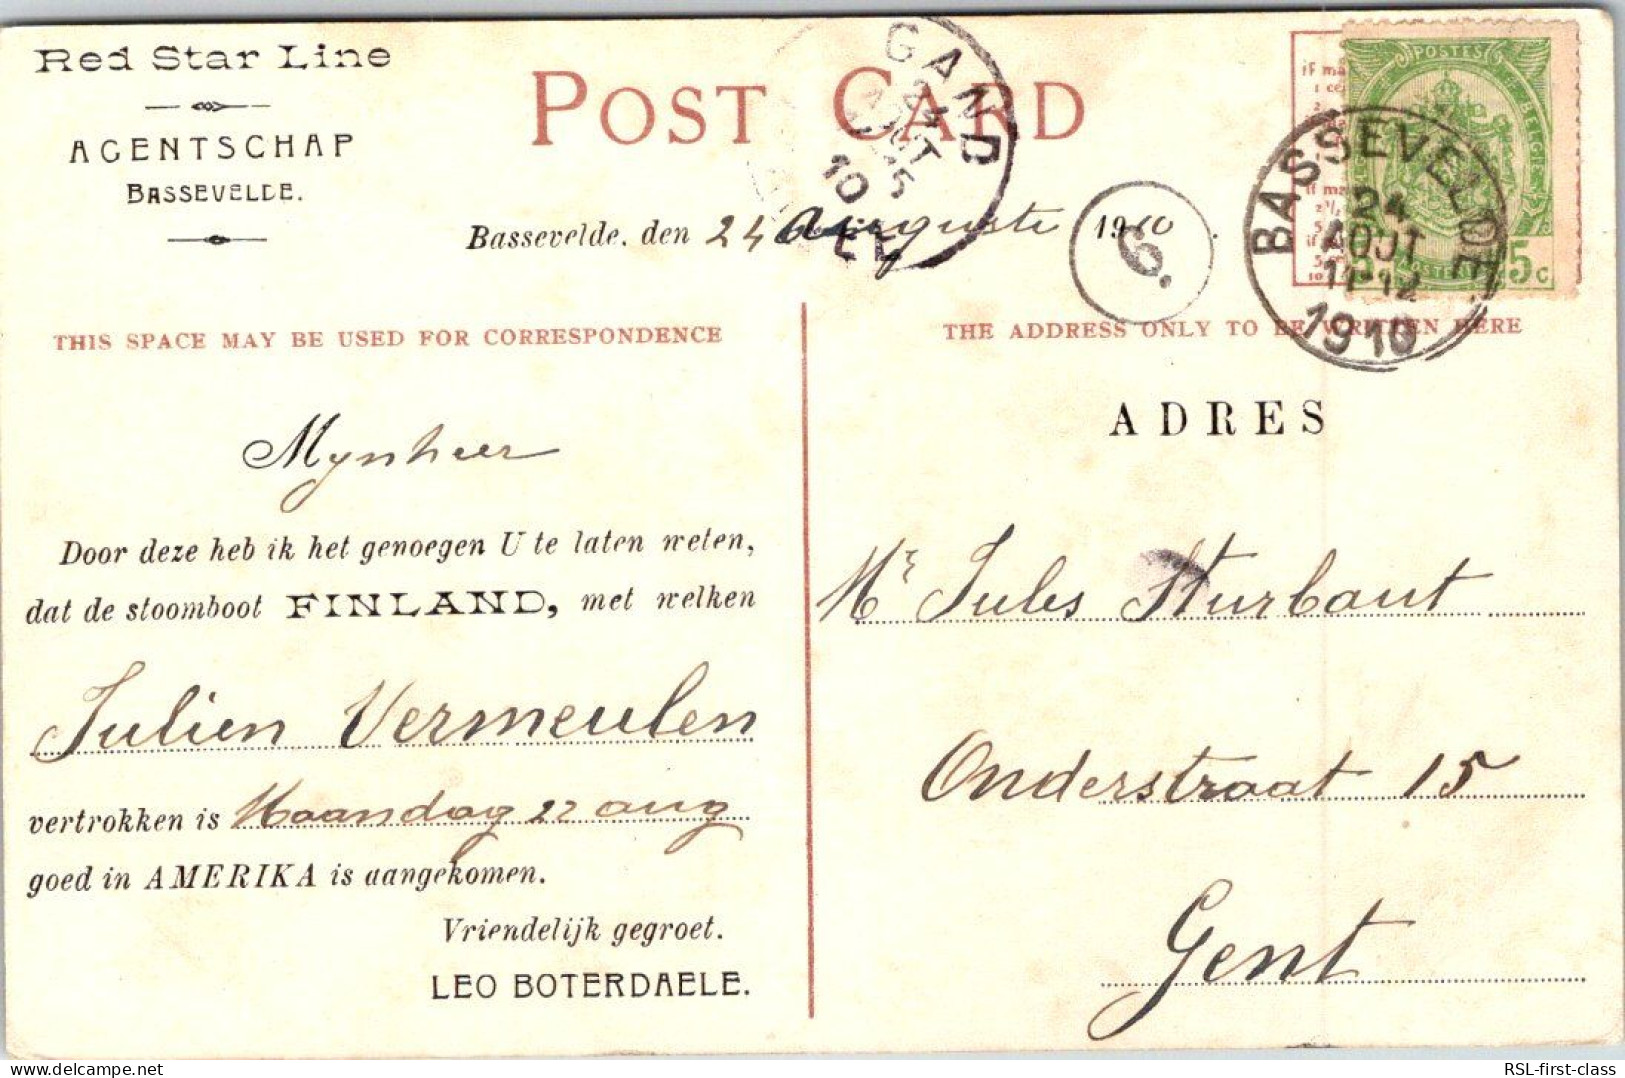 Red Star Line
AGENTSCHAP
BASSEVELDE.
POST CARD
GAND
24
AOUT
15
10
BASSEVELDE
24
AOUT
11-12
1910
POSTES
5 5 C
if ma
1 ce
if ma
2½
5
if
5
10
Bassevelde, den 24 Auguste 1910.
6.
THIS SPACE MAY BE USED FOR CORRESPONDENCE
THE ADDRESS ONLY TO BE WRITTEN HERE
Mynheer
Door deze heb ik het genoegen U te laten weten,
dat de stoomboot FINLAND, met welken
Julien Vermeulen
vertrokken is Maandag 22 aug
goed in AMERIKA is aangekomen.
Vriendelijk gegroet.
LEO BOTERDAELE.
ADRES
Mr Jules Sturbaut
Onderstraat 15
Gent
RSL-first-class